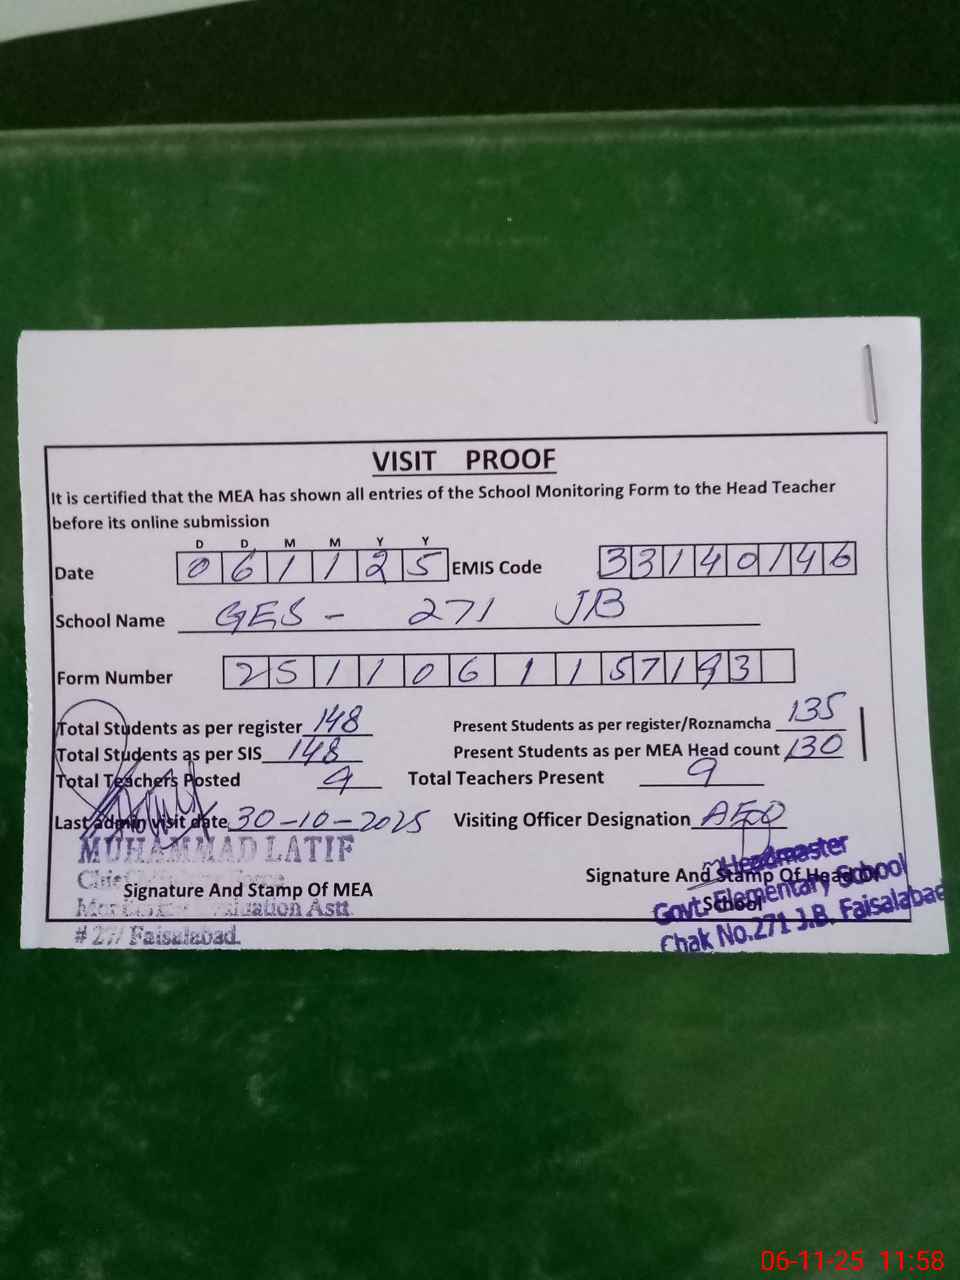 VISIT PROOF
It is certified that the MEA has shown all entries of the School Monitoring Form to the Head Teacher
before its online submission
D D M M Y Y
Date 0 6 1 1 2 5 EMIS Code 3 3 1 4 0 1 4 6
School Name GES - 271 JB
Form Number 2 5 1 1 0 6 1 1 5 7 1 9 3
Total Students as per register 148 Present Students as per register/Roznamcha 135
Total Students as per SIS 148 Present Students as per MEA Head count 130
Total Teachers Posted 9 Total Teachers Present 9
Last admin visit date 30-10-2025 Visiting Officer Designation AEO
MUHAMMAD LATIF
Signature And Stamp Of MEA Signature And Stamp Of Head
School
Astt
# 27/ Faisalabad.
Headmaster
Govt. Elementary School
Chak No.271 J.B. Faisalabad
06-11-25 11:58